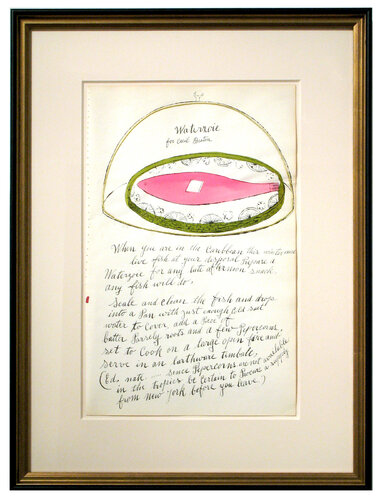 Waterzoie
for Cecil Beaton
When you are in the Caribbean this winter and
live fish at your disposal prepare a
Waterzoie for any late afternoon snack.
any fish will do.
Scale and clean the fish and drop
into a Pan with just enough Cold salt
water to Cover, add a Piece of
butter Parsely roots and a few Pepercorns,
set to Cook on a large open fire and
serve in an Earthware timbale,
(Ed. note - since Pepercorns are not available
in the tropics be Certain to Procure a supply
from New York before you leave)